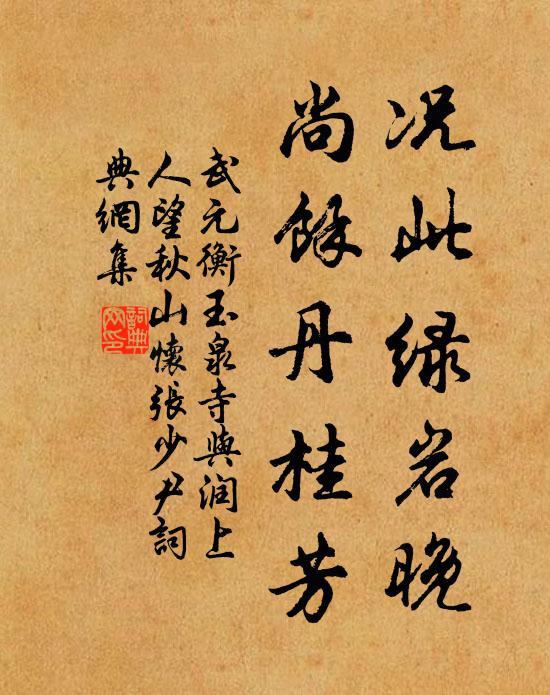 况此绿岩晚
尚馀丹桂芳
武元衡玉泉寺与润上
人望秋山怀张少尹词
典网集
词典
网印